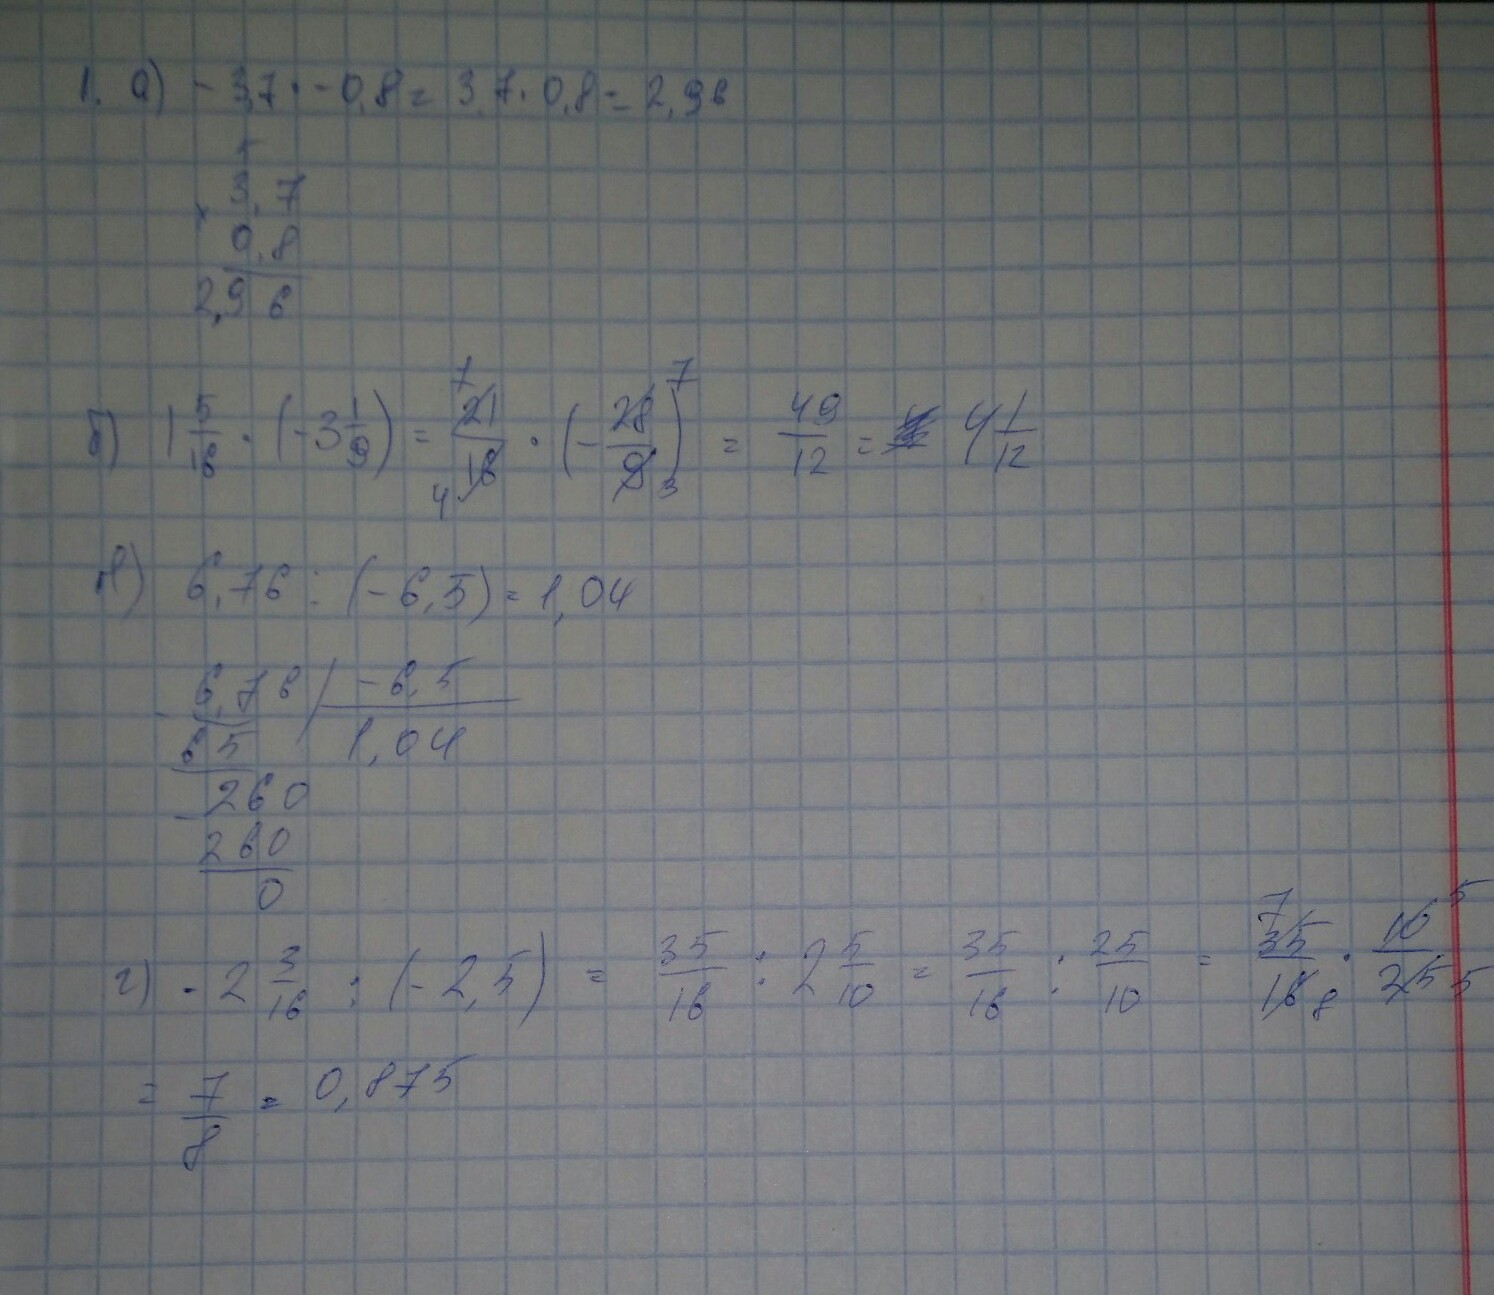 1. а) - 3,7 · - 0,8 = 3,7 · 0,8 = 2,96
5
× 3,7
0,8
2,96
б) 1 5/16 · (-3 1/9) = 21/16 · (- 28/9) = 49/12 = 4 1/12
7 4 7 3
в) 6,76 : (-6,5) = 1,04
6,76 | -6,5
65 1,04
- 260
260
0
г) - 2 3/16 : (-2,5) = 35/16 : 2 5/10 = 35/16 : 25/10 = 35/16 · 10/25
7 8 5 5
= 7/8 = 0,875